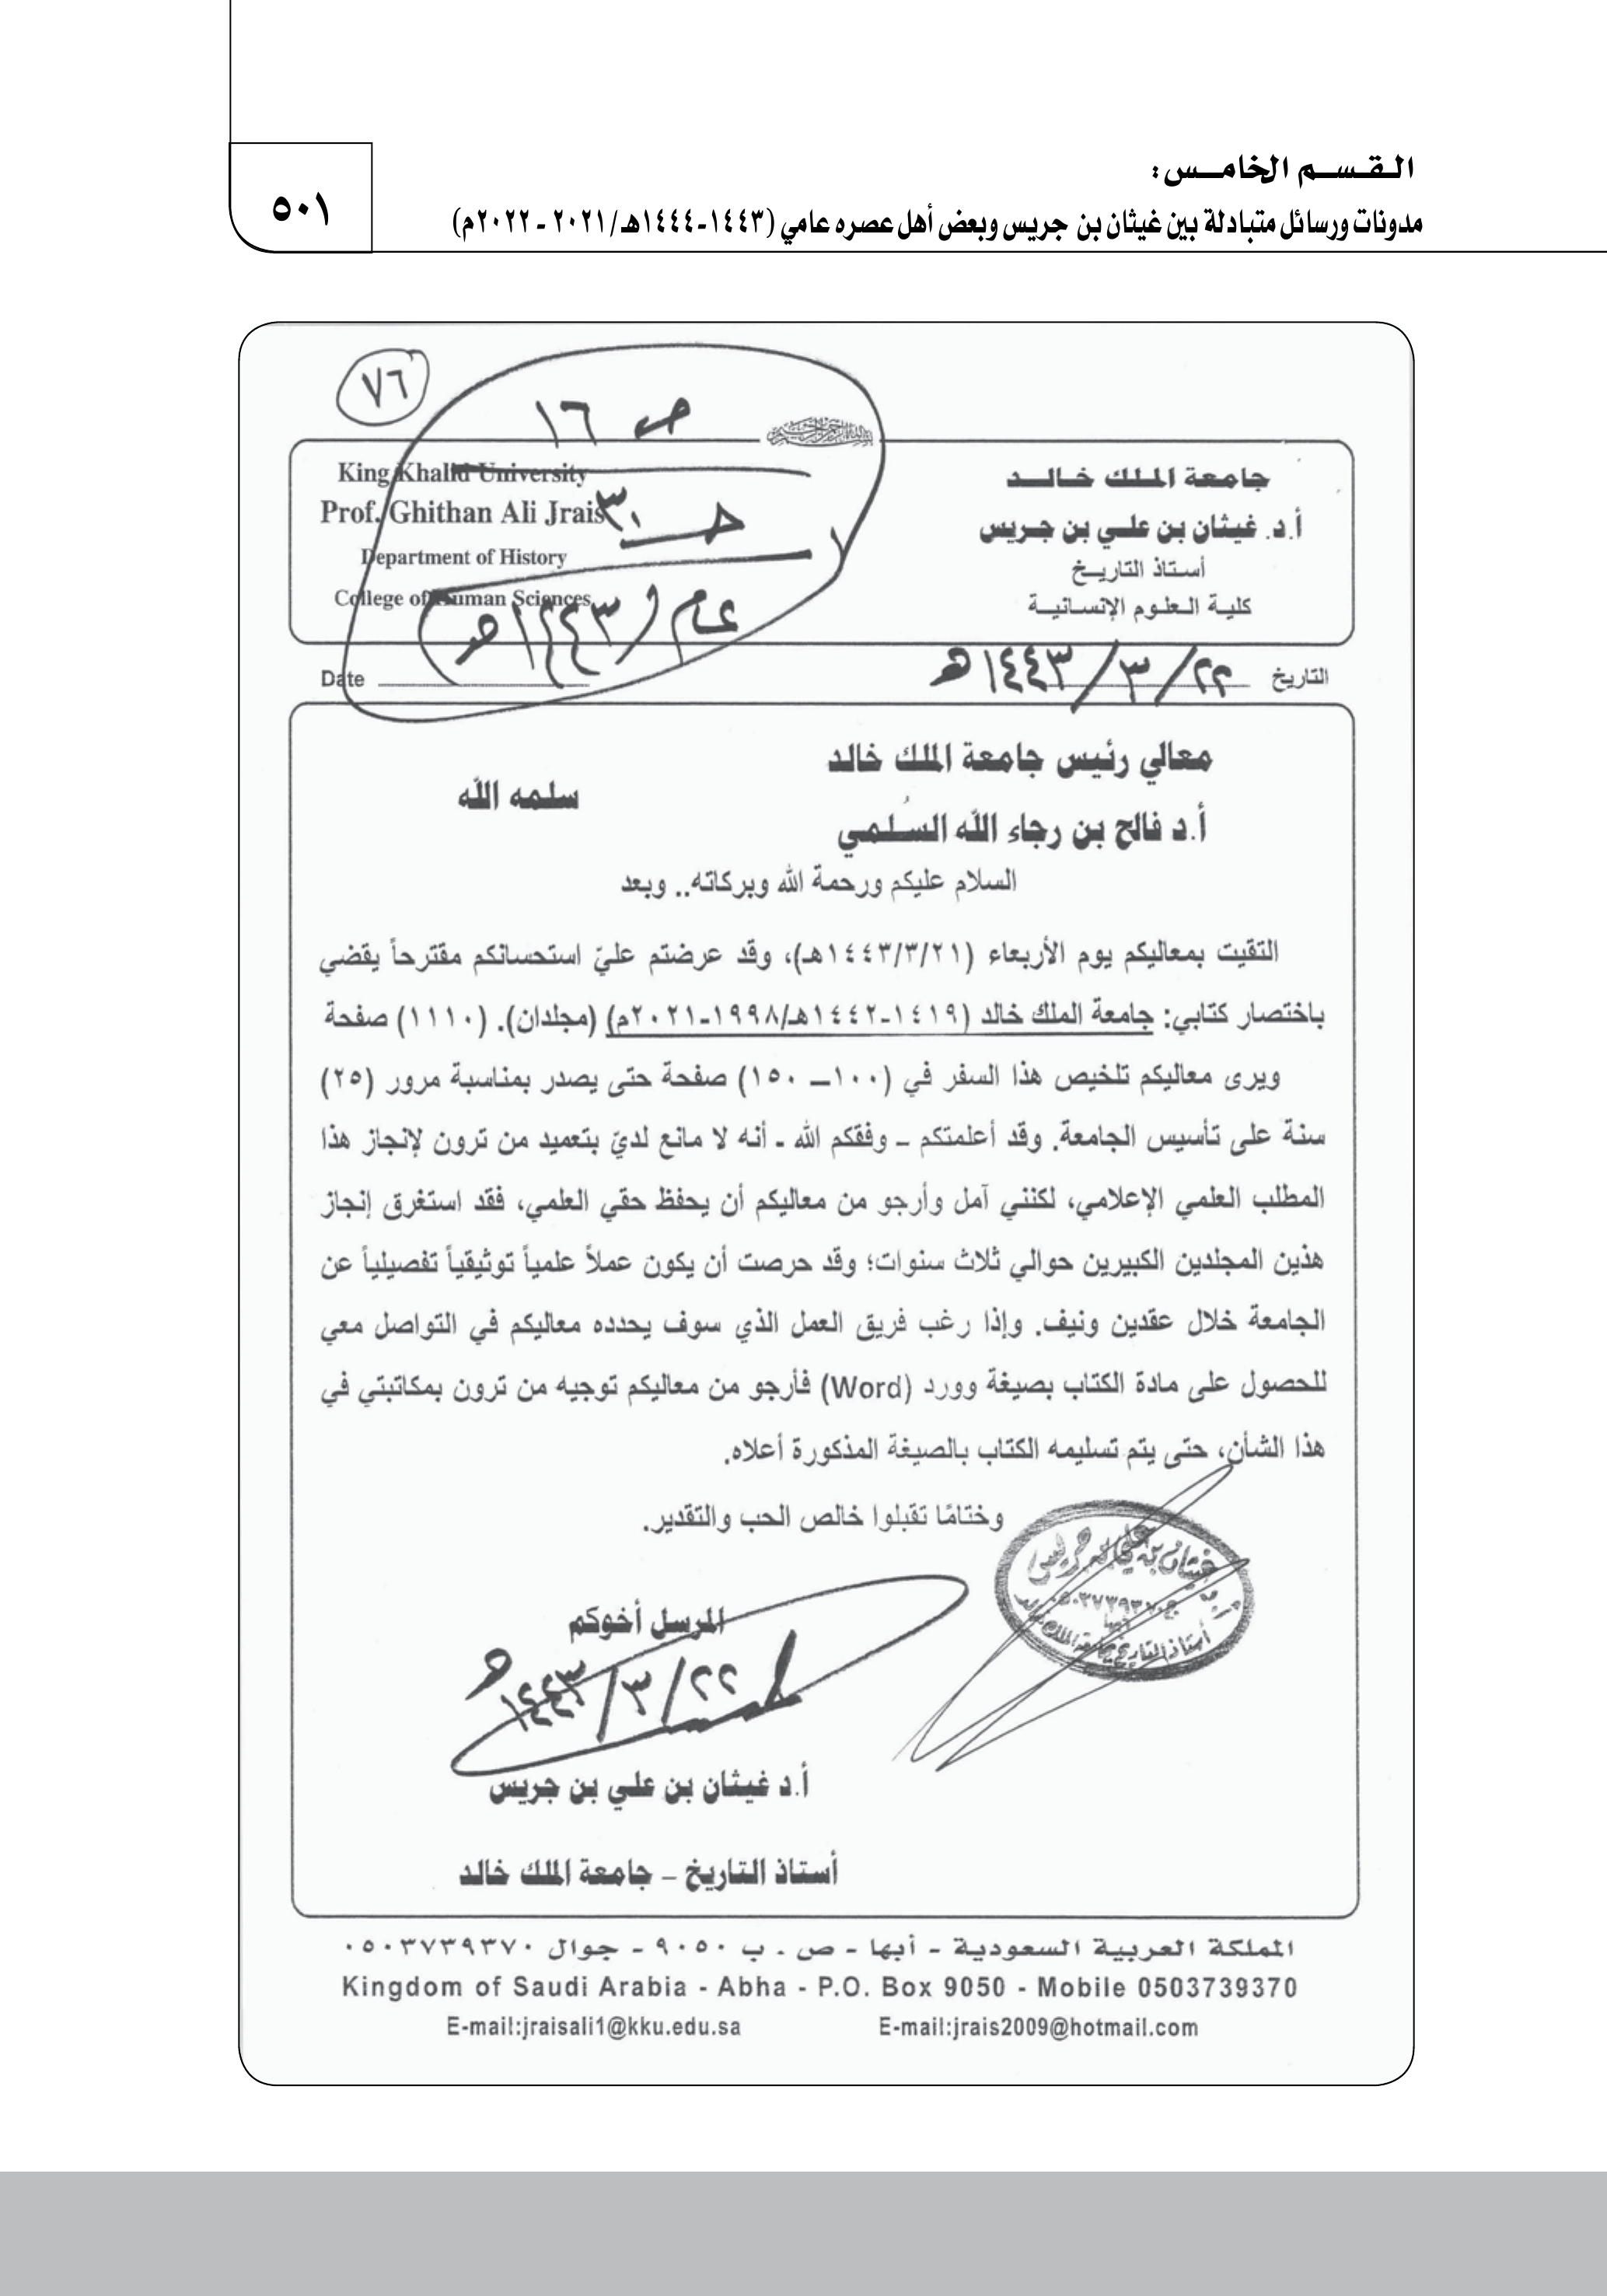 القسم الخامس:
مدونات ورسائل متبادلة بين غيثان بن جريس وبعض أهل عصره عامي (١٤٤٣-١٤٤٤هـ/ ٢٠٢١ - ٢٠٢٢م)
٥٠١
٧٦
ص ١٦
جـ ٣٠
عام ١٤٤٣هـ
جامعة الملك خالد
أ.د. غيثان بن علي بن جريس
أستاذ التاريخ
كلية العلوم الإنسانية
King Khalid University
Prof. Ghithan Ali Jrais
Department of History
College of Human Sciences
التاريخ ٢٢/٣/١٤٤٣هـ
Date
معالي رئيس جامعة الملك خالد
أ.د فالح بن رجاء الله السُلمي
سلمه الله
السلام عليكم ورحمة الله وبركاته.. وبعد
التقيت بمعاليكم يوم الأربعاء (١٤٤٣/٣/٢١هـ)، وقد عرضتم عليّ استحسانكم مقترحاً يقضي
باختصار كتابي: جامعة الملك خالد (١٤١٩-١٤٤٢هـ/١٩٩٨-٢٠٢١م) (مجلدان). (١١١٠) صفحة
ويرى معاليكم تلخيص هذا السفر في (١٠٠– ١٥٠) صفحة حتى يصدر بمناسبة مرور (٢٥)
سنة على تأسيس الجامعة. وقد أعلمتكم – وفقكم الله - أنه لا مانع لديّ بتعميد من ترون لإنجاز هذا
المطلب العلمي الإعلامي، لكنني آمل وأرجو من معاليكم أن يحفظ حقي العلمي، فقد استغرق إنجاز
هذين المجلدين الكبيرين حوالي ثلاث سنوات؛ وقد حرصت أن يكون عملاً علمياً توثيقياً تفصيلياً عن
الجامعة خلال عقدين ونيف. وإذا رغب فريق العمل الذي سوف يحدده معاليكم في التواصل معي
للحصول على مادة الكتاب بصيغة وورد (Word) فأرجو من معاليكم توجيه من ترون بمكاتبتي في
هذا الشأن، حتى يتم تسليمه الكتاب بالصيغة المذكورة أعلاه.
وختامًا تقبلوا خالص الحب والتقدير.
غيثان بن علي بن جريس
أستاذ التاريخ بجامعة الملك خالد
المرسل أخوكم
٢٢/٣/١٤٤٣هـ
أ.د غيثان بن علي بن جريس
أستاذ التاريخ – جامعة الملك خالد
المملكة العربية السعودية - أبها - ص . ب ٩٠٥٠ - جوال ٠٥٠٣٧٣٩٣٧٠
Kingdom of Saudi Arabia - Abha - P.O. Box 9050 - Mobile 0503739370
E-mail:jraisali1@kku.edu.sa
E-mail:jrais2009@hotmail.com